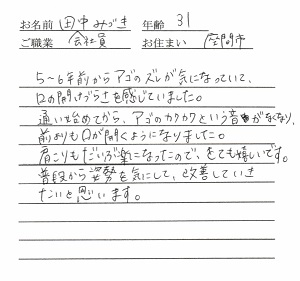 お名前 田中 みづき 年齢 31
ご職業 会社員 お住まい 座間市
5〜6年前からアゴのズレが気になっていて、
口の開けづらさを感じていました。
通い始めてから、アゴのカクカクという音がなくなり、
前よりも口が開くようになりました。
肩こりもだいぶ楽になったので、とても嬉しいです。
普段から姿勢を気にして、改善していき
たいと思います。